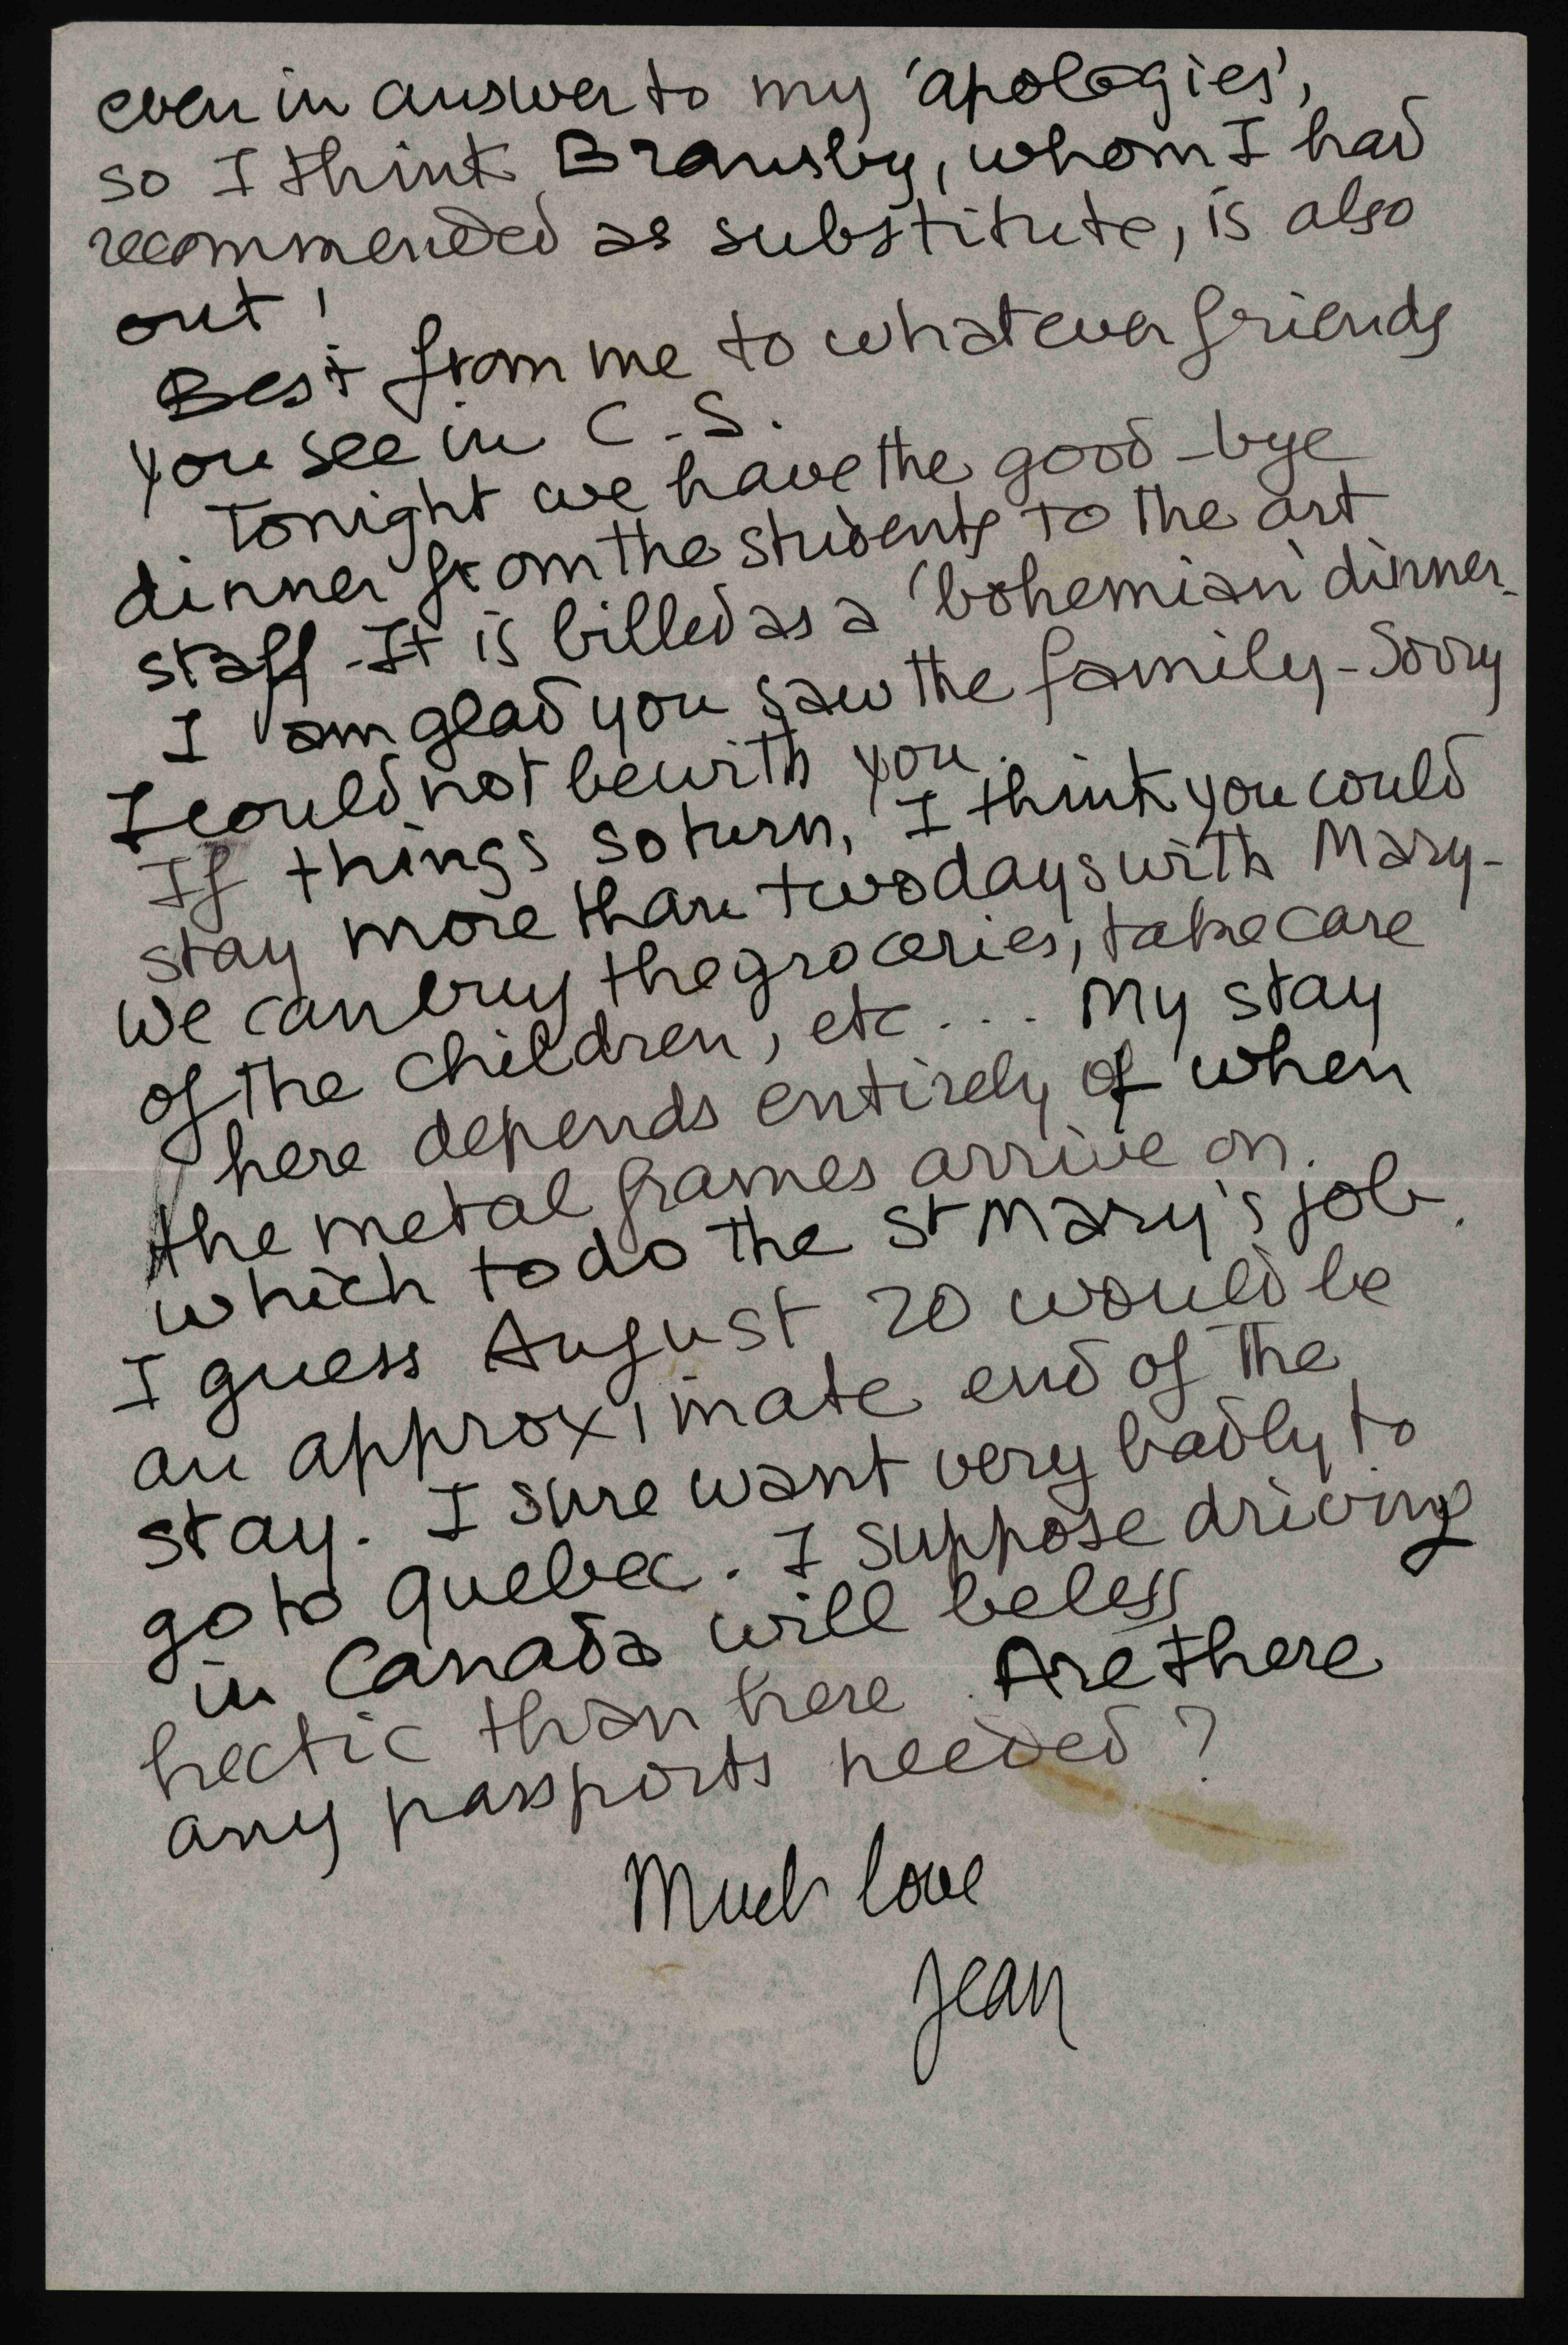 even in answer to my 'apologies',
so I think Bransby, whom I had
recommended as substitute, is also
out!
Best from me to whatever friends
you see in C.S.
Tonight we have the good-bye
dinner from the students to the art
staff - It is billed as a 'bohemian' dinner.
I am glad you saw the family - Sorry
I could not be with you.
If things so turn, I think you could
stay more than two days with Mary -
We can buy the groceries, take care
of the children, etc... My stay
here depends entirely of when
the metal frames arrive on
which to do the St Mary's job.
I guess August 20 would be
an approximate end of the
stay. I sure want very badly to
go to Quebec. I suppose driving
in Canada will be less
hectic than here. Are there
any passports needed?
Much love
Jean